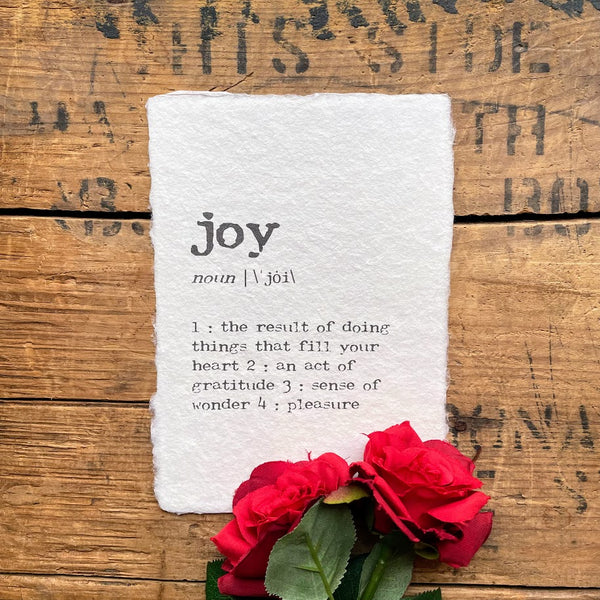 THIS SIDE
TH
joy
noun |\ˈjȯi\
1 : the result of doing
things that fill your
heart 2 : an act of
gratitude 3 : sense of
wonder 4 : pleasure